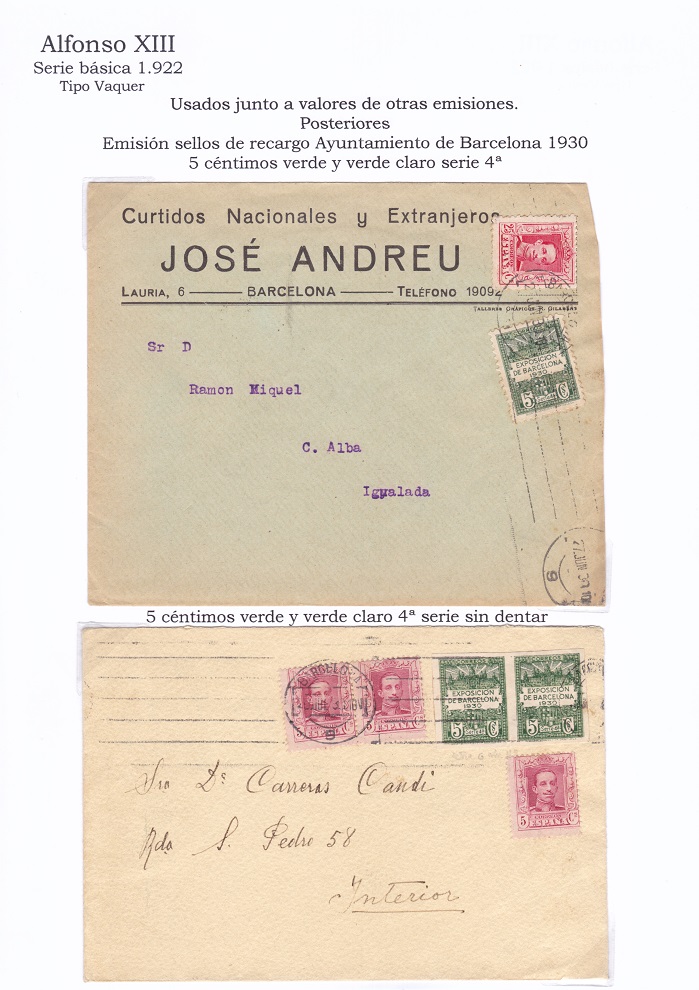 Alfonso XIII
Serie básica 1.922
Tipo Vaquer
Usados junto a valores de otras emisiones.
Posteriores
Emisión sellos de recargo Ayuntamiento de Barcelona 1930
5 céntimos verde y verde claro serie 4ª
Curtidos Nacionales y Extranjeros
JOSÉ ANDREU
LAURIA, 6 — BARCELONA — TELÉFONO 19092
TALLERES GRÁFICOS
25
ESPAÑA
EXPOSICION
DE BARCELONA
1930
5 Cs
Sr D
Ramon Miquel
C. Alba
Igualada
6
5 céntimos verde y verde claro 4ª serie sin dentar
5
ESPAÑA
5
ESPAÑA
EXPOSICION
DE BARCELONA
1930
5 Cs
EXPOSICION
DE BARCELONA
1930
5 Cs
5 Cs
ESPAÑA
Carreras Candi
Rda S. Pedro 58
Interior